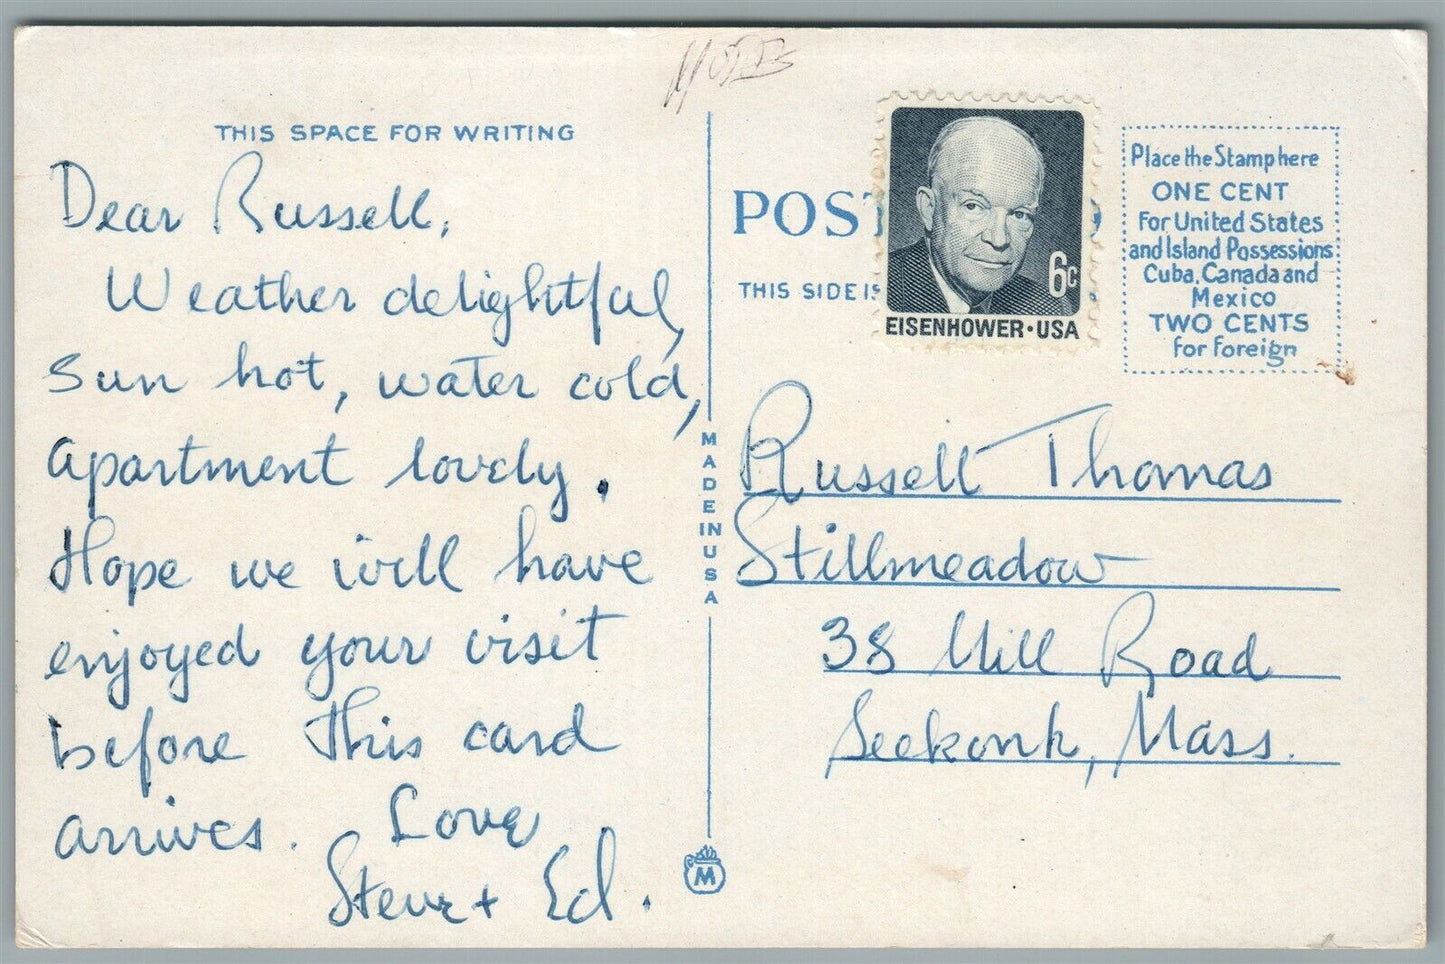 THIS SPACE FOR WRITING
Dear Russell,
Weather delightful,
sun hot, water cold,
apartment lovely.
Hope we will have
enjoyed your visit
before this card
arrives. Love
Steve + Ed.
MADE IN USA
M
POST
THIS SIDE IS
6c
EISENHOWER·USA
Place the Stamp here
ONE CENT
For United States
and Island Possessions
Cuba, Canada and
Mexico
TWO CENTS
for Foreign
Russell Thomas
Stillmeadow
38 Mill Road
Seekonk, Mass.